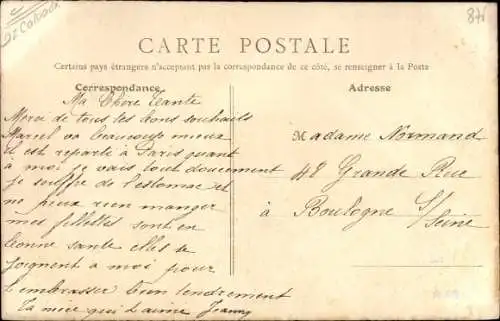 CARTE POSTALE
Certains pays étrangers n'acceptant pas la correspondance de ce côté, se renseigner à la Poste
Correspondance
Ma Chère tante
Merci de tous tes bons souhaits
Marcel va beaucoup mieux
il est reparti à Paris quant
à moi je vais tout doucement
je souffre de l'estomac et
ne peux rien manger
mes fillettes sont en
bonne santé elles se
joignent à moi pour
t'embrasser bien tendrement
Ta nièce qui t'aime Jeanny
Adresse
Madame Normand
48 Grande Rue
à Boulogne s/
Seine